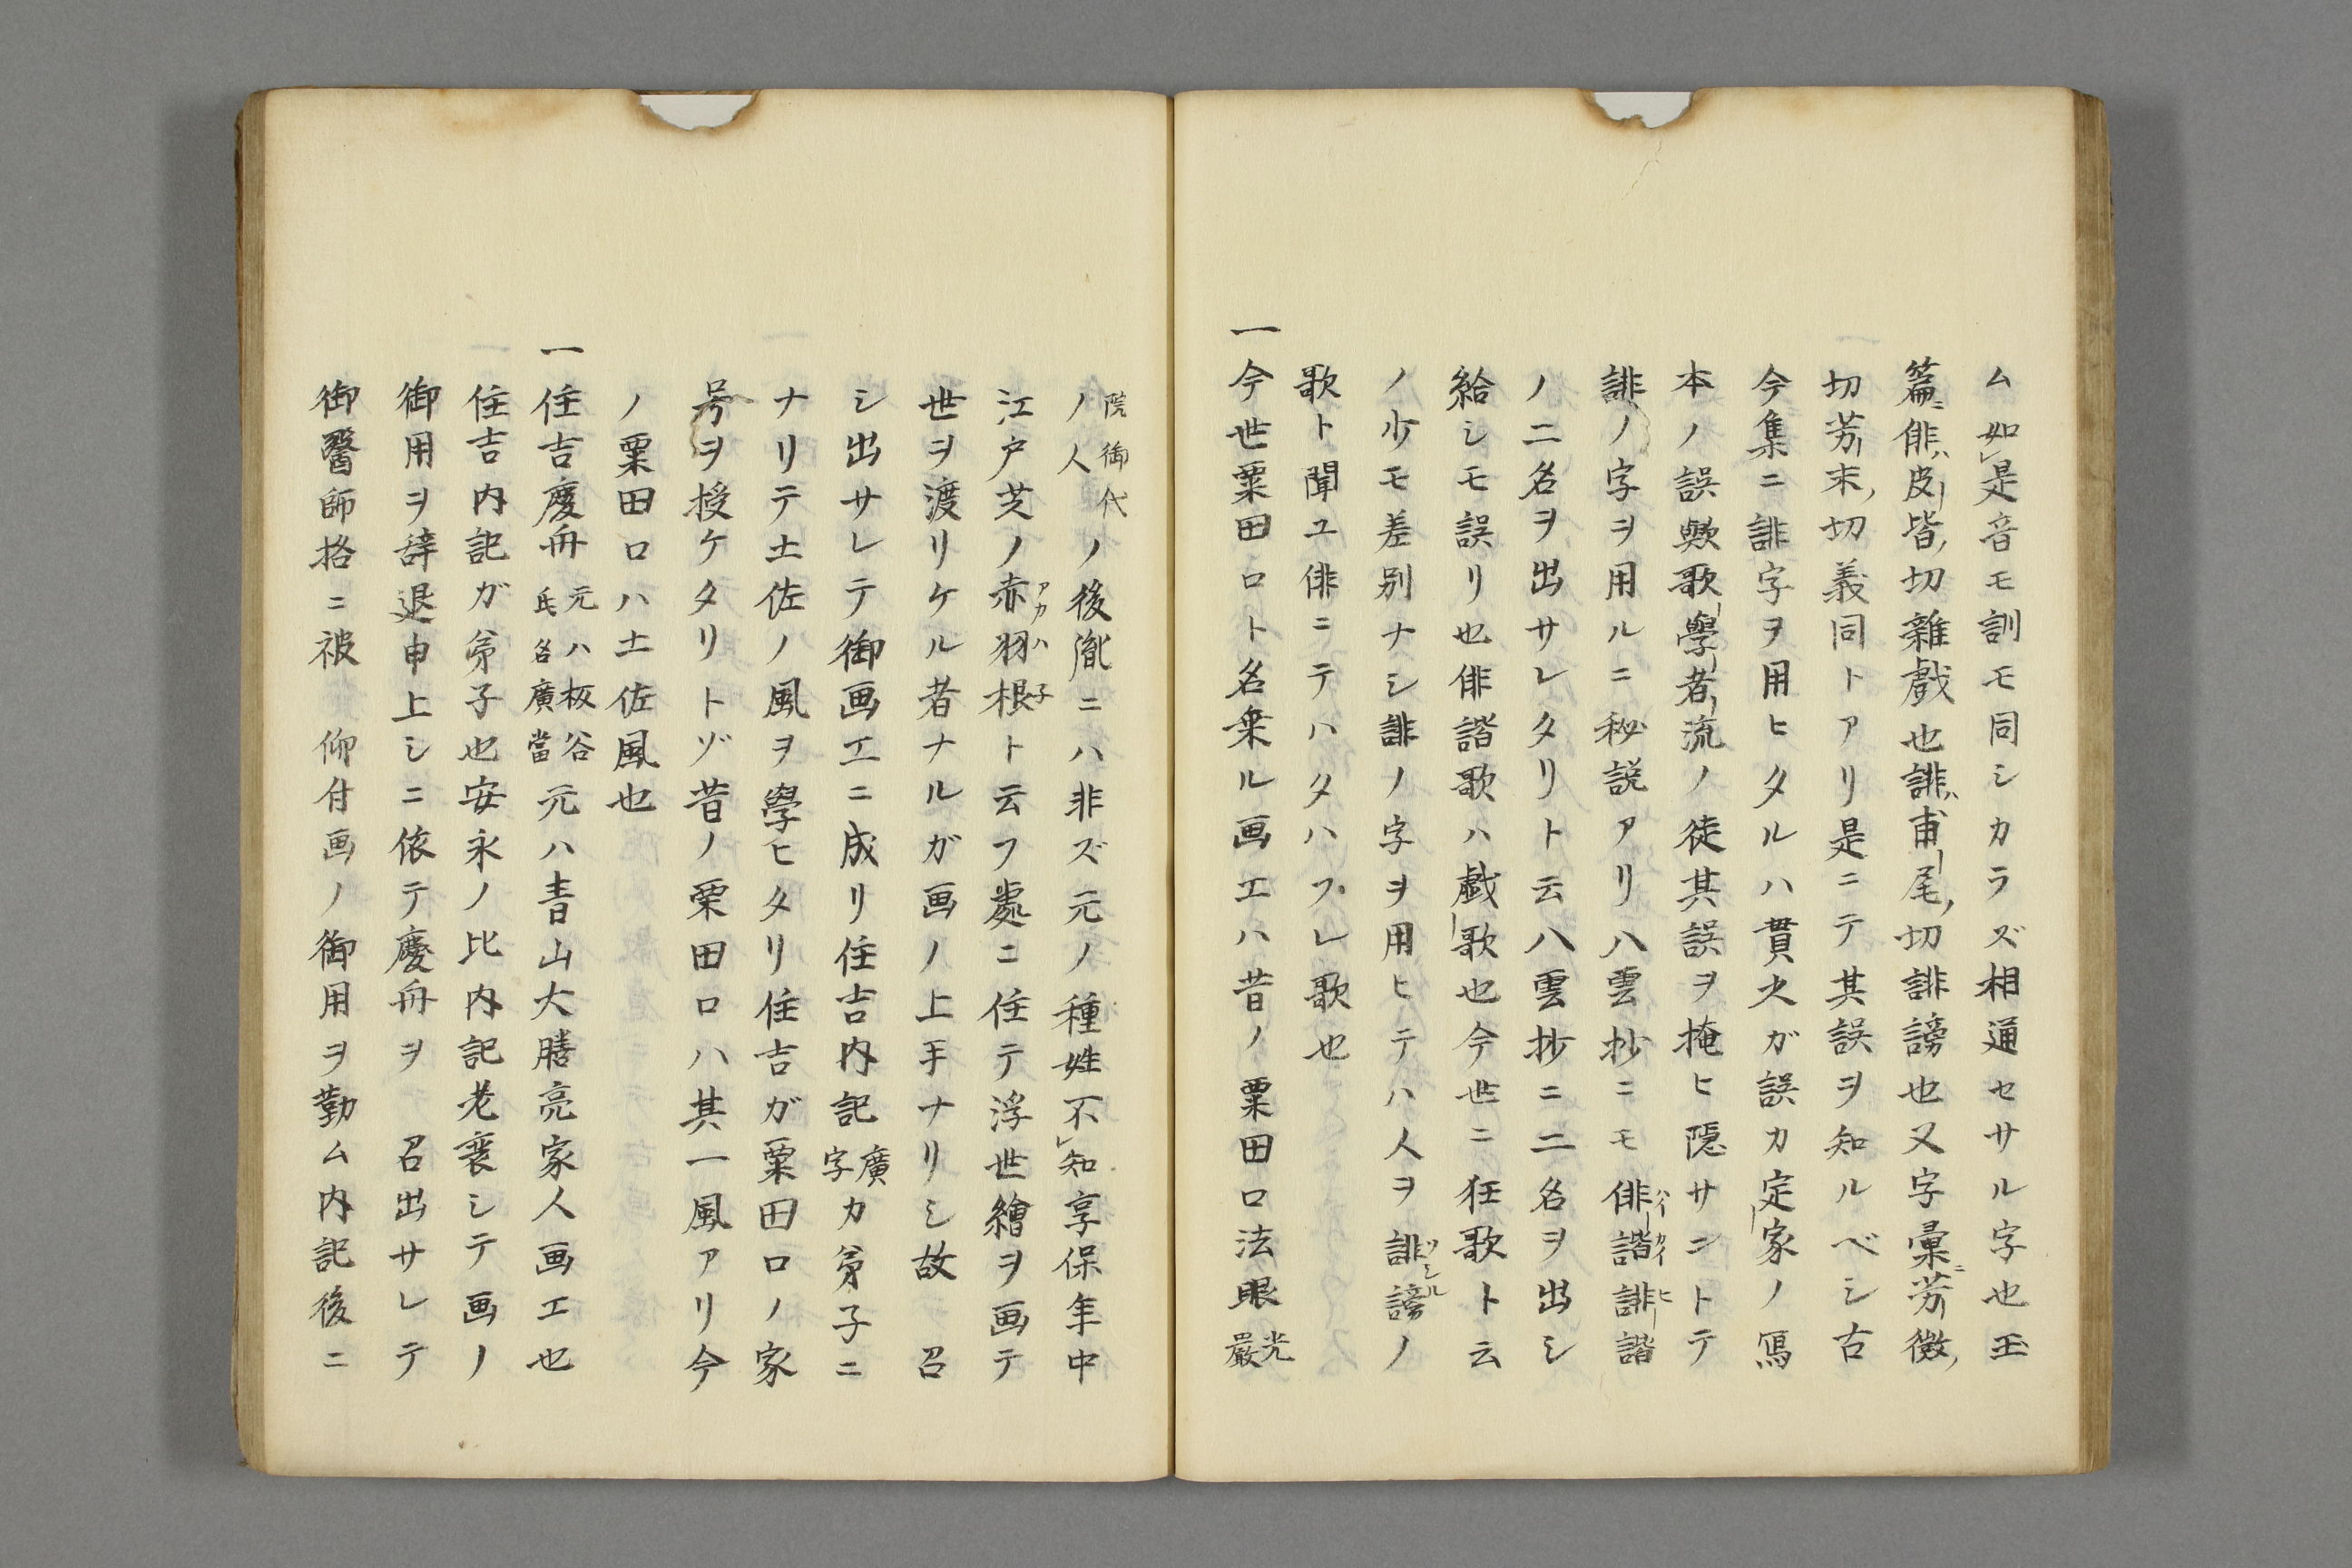 ム如是音モ訓モ同シカラズ相通セサル字也玉
篇ニ俳ハ皮皆切雑戯也誹ハ甫尾切誹謗也又字彙ニ芳微
切芳末切義同トアリ是ニテ其誤ヲ知ルベシ古
今集ニ誹字ヲ用ヒタルハ貫之ガ誤カ定家ノ寫
本ノ誤歟歌學者流ノ徒其誤ヲ掩ヒ隠サントテ
誹ノ字ヲ用ルニ秘説アリ八雲抄ニモ俳諧誹諧
ノ二名ヲ出サレタリト云八雲抄ニ二名ヲ出シ
給シモ誤リ也俳諧歌ハ戯歌也今世ニ狂歌ト云
ノ少モ差別ナシ誹ノ字ヲ用ヒテハ人ヲ誹謗ノ
歌ト聞ユ俳ニテハタハフレ歌也
一今世粟田口ト名乗ル画工ハ昔ノ粟田口法眼光嚴
院御代ノ人ノ後胤ニハ非ズ元ノ種姓不知享保年中
江戸芝ノ赤羽根ト云フ處ニ住テ浮世繪ヲ画テ
世ヲ渡リケル者ナルガ画ノ上手ナリシ故 召
シ出サレテ御画工ニ成リ住吉内記廣守カ弟子ニ
ナリテ土佐ノ風ヲ學ヒタリ住吉ガ粟田口ノ家
号ヲ授ケタリトゾ昔ノ粟田口ハ其一風アリ今
ノ粟田口ハ土佐風也
一住吉慶舟元ハ板谷氏名廣當元ハ青山大膳亮家人画工也
住吉内記ガ弟子也安永ノ比内記老衰シテ画ノ
御用ヲ辞退申上シニ依テ慶舟ヲ 召出サレテ
御醫師格ニ被 仰付画ノ御用ヲ勤ム内記後ニ